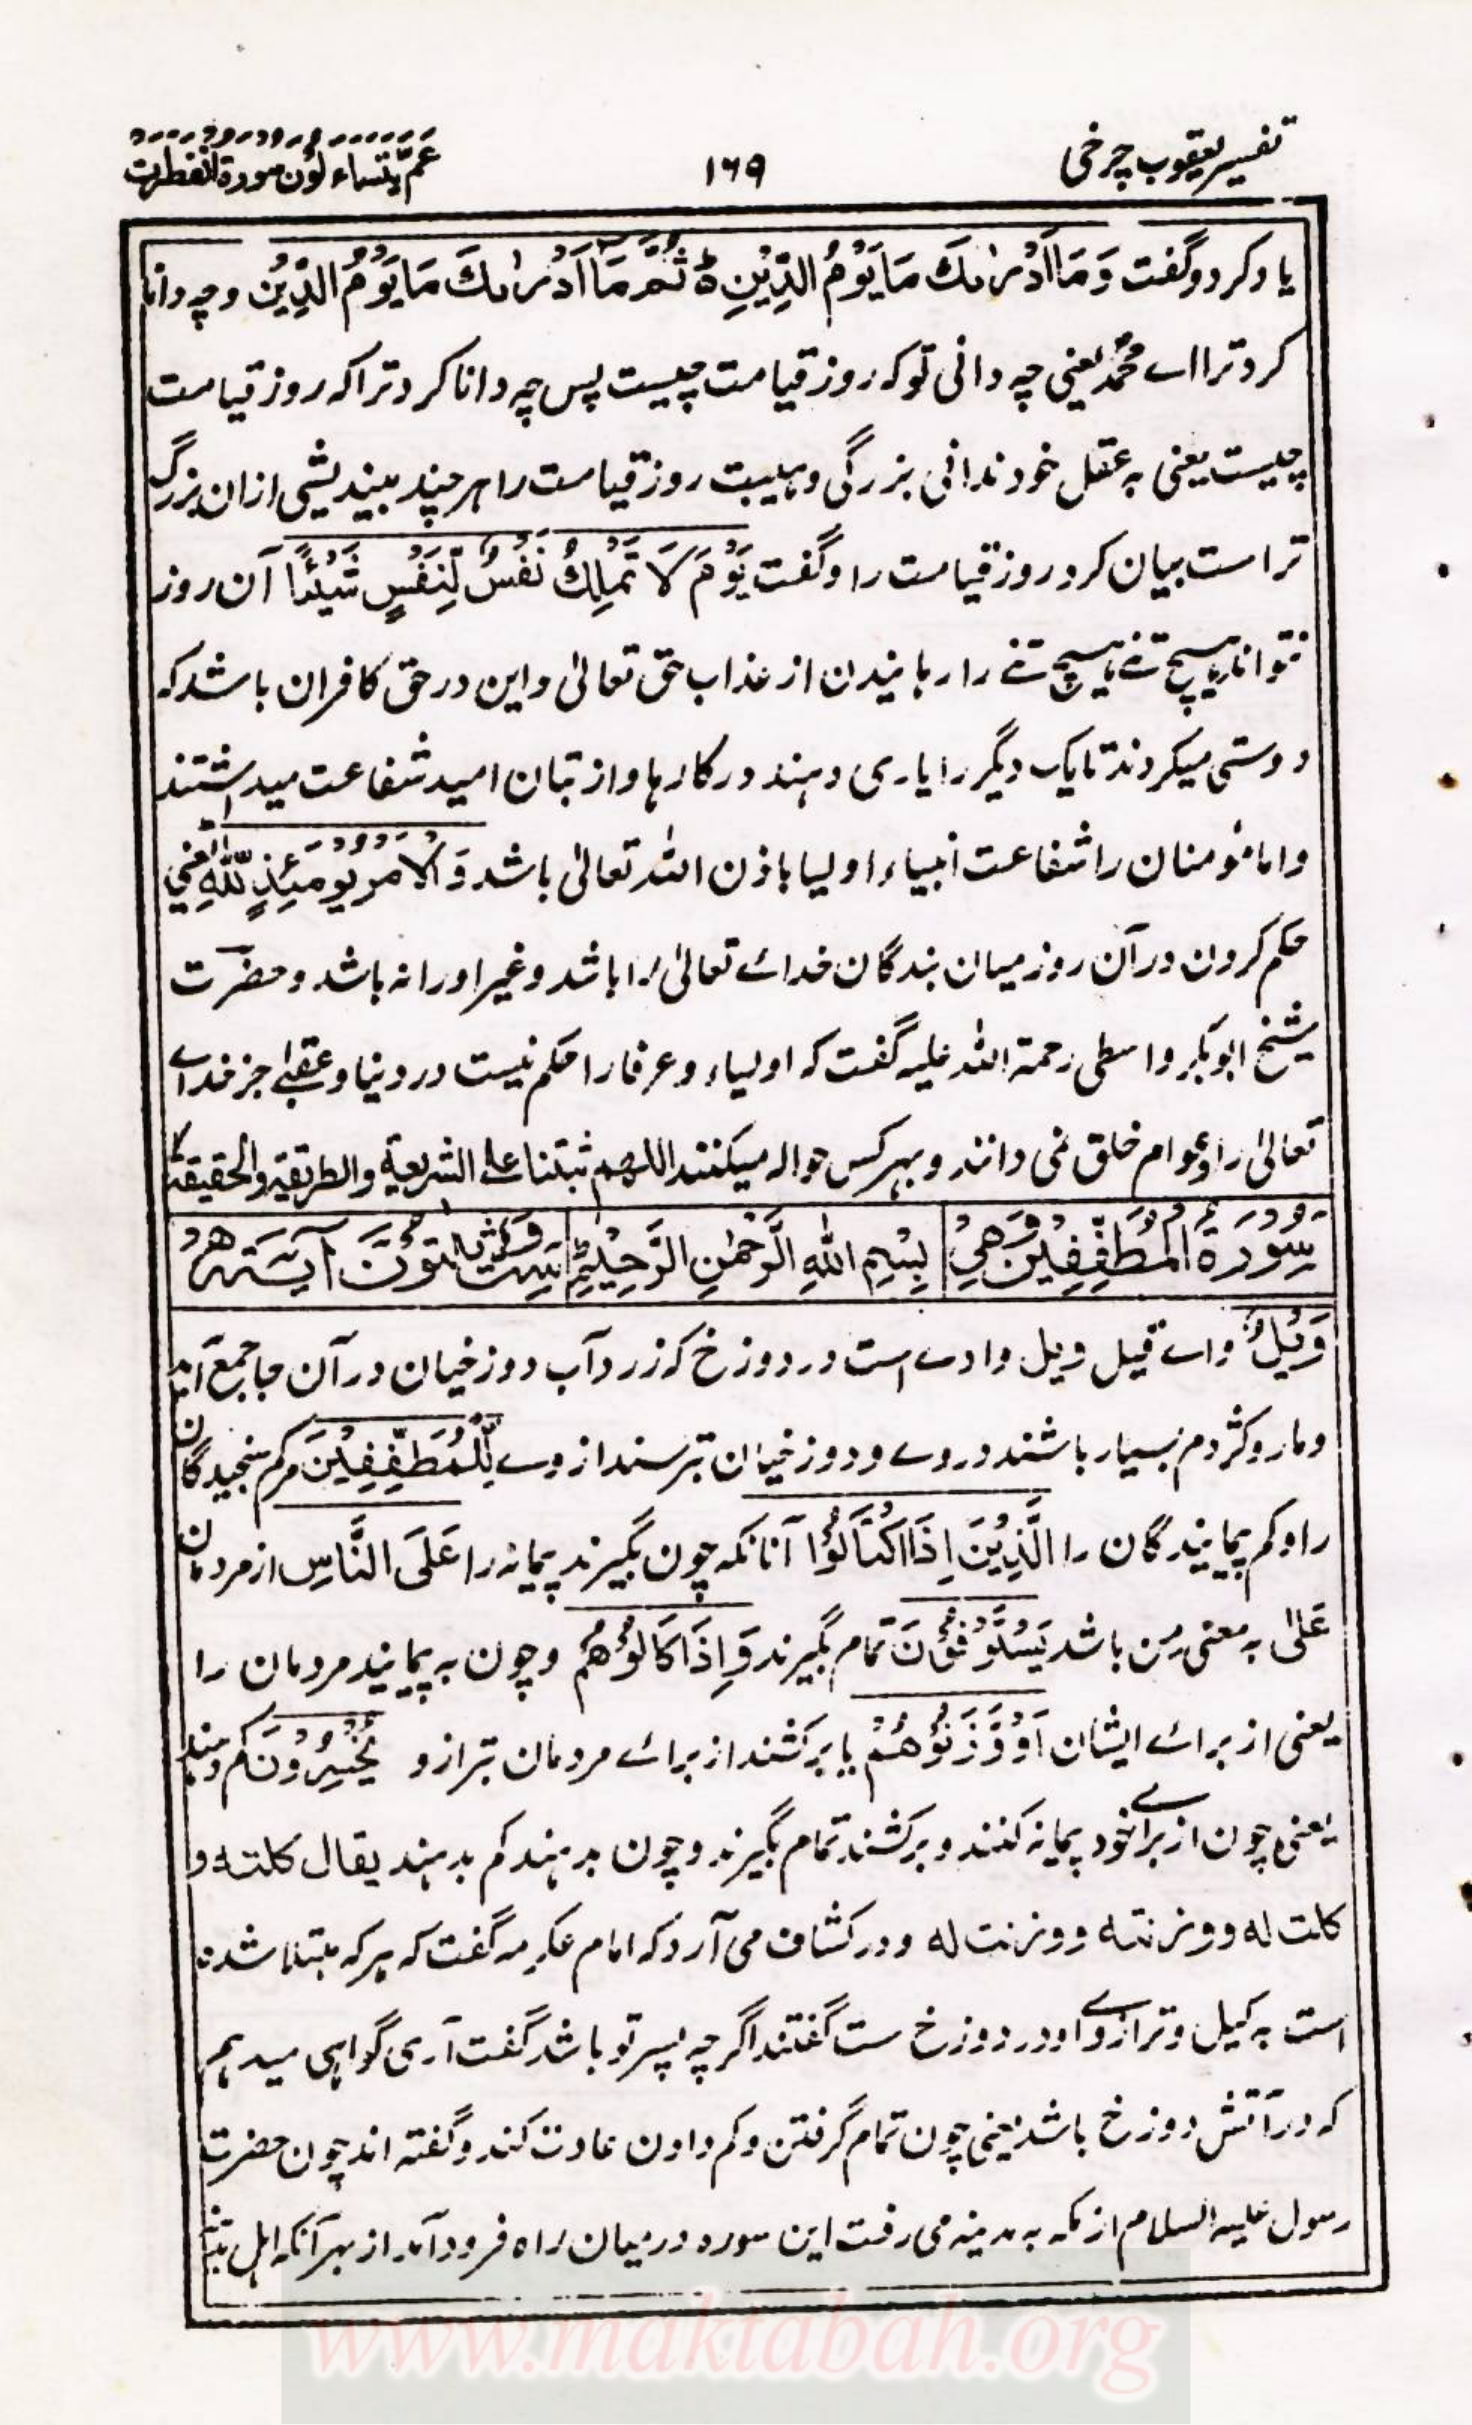 تفسیر یعقوب چرخی
۱۶۹
عمّ یتساءلون سورة انفطرت
یاد کرد و گفت وَمَا اَدْرٰىكَ مَا يَوْمُ الدِّيْنِ ۙ ثُمَّ مَا اَدْرٰىكَ مَا يَوْمُ الدِّيْنِ و چه دانا
کرد ترا اے محمدؐ یعنی چه دانی تو که روز قیامت چیست پس چه دانا کرد ترا که روز قیامت
چیست یعنی به عقل خود ندانی بزرگی و هیبت روز قیامت را هر چند بیندیشی ازان بزرگ
تر است بیان کرد روز قیامت را و گفت يَوْمَ لَا تَمْلِكُ نَفْسٌ لِّنَفْسٍ شَيْـًٔا آن روز
نتواند هیچ تنے هیچ تنے را رهانیدن از عذاب حق تعالیٰ و این در حق کافران باشد که
دوستی میکردند تا یک دیگر را یاری دهند در کارها و از بتان امید شفاعت میداشتند
و اما مؤمنان را شفاعت انبیاء اولیا باذن اللہ تعالیٰ باشد وَالْاَمْرُ يَوْمَئِذٍ لِّلّٰهِ یعنی
حکم کردن در آن روز میان بندگان خدائے تعالیٰ را باشد و غیر او را نه باشد و حضرت
شیخ ابوبکر واسطی رحمة اللہ علیه گفت که اولیاء و عرفا را حکم نیست در دنیا و عقبےٰ جز خداے
تعالیٰ را و عوام خلق نمی دانند و بهر کس حواله میکنند اللهم ثبتنا علی الشریعة والطریقة والحقیقة
سُوْرَةُ الْمُطَفِّفِيْنَ وَهِىَ بِسْمِ اللهِ الرَّحْمٰنِ الرَّحِيْمِ سِتٌّ وَّثَلٰثُوْنَ اٰيَةً
وَيْلٌ واے قیل ویل وادے است در دوزخ که زرد آب دوزخیان در آن جا جمع آید
و مار و کژدم بسیار باشند در وے و دوزخیان بترسند از وے لِّلْمُطَفِّفِيْنَ مرکم سنجیدگان
را و کم پیمایندگان را الَّذِيْنَ اِذَا اكْتَالُوْا آنانکه چون بگیرند پیمانه را عَلَى النَّاسِ از مردمان
عَلیٰ به معنی مِن باشد يَسْتَوْفُوْنَ تمام بگیرند وَاِذَا كَالُوْهُمْ و چون به پیمایند مردمان را
یعنی از برائے ایشان اَوْ وَّزَنُوْهُمْ یا برکشند از برائے مردمان بترازو يُخْسِرُوْنَ کم دهند
یعنی چون از براے خود پیمانه کنند و برکشند تمام بگیرند و چون بدهند کم بدهند یقال کلته و
کلت له و وزنته و وزنت له و در کشاف می آرد که امام عکرمه گفت که هر که مبتلا شده
است به کیل و ترازوے او در دوزخ ست گفتند اگرچه پسر تو باشد گفت آری گواهی میدهم
که در آتش دوزخ باشد یعنی چون تمام گرفتن و کم دادن عادت کند و گفته اند چون حضرت
رسول علیه السلام از مکه به مدینه می رفت این سوره درمیان راه فرود آمد از بهر آنکه اهل
www.maktabah.org